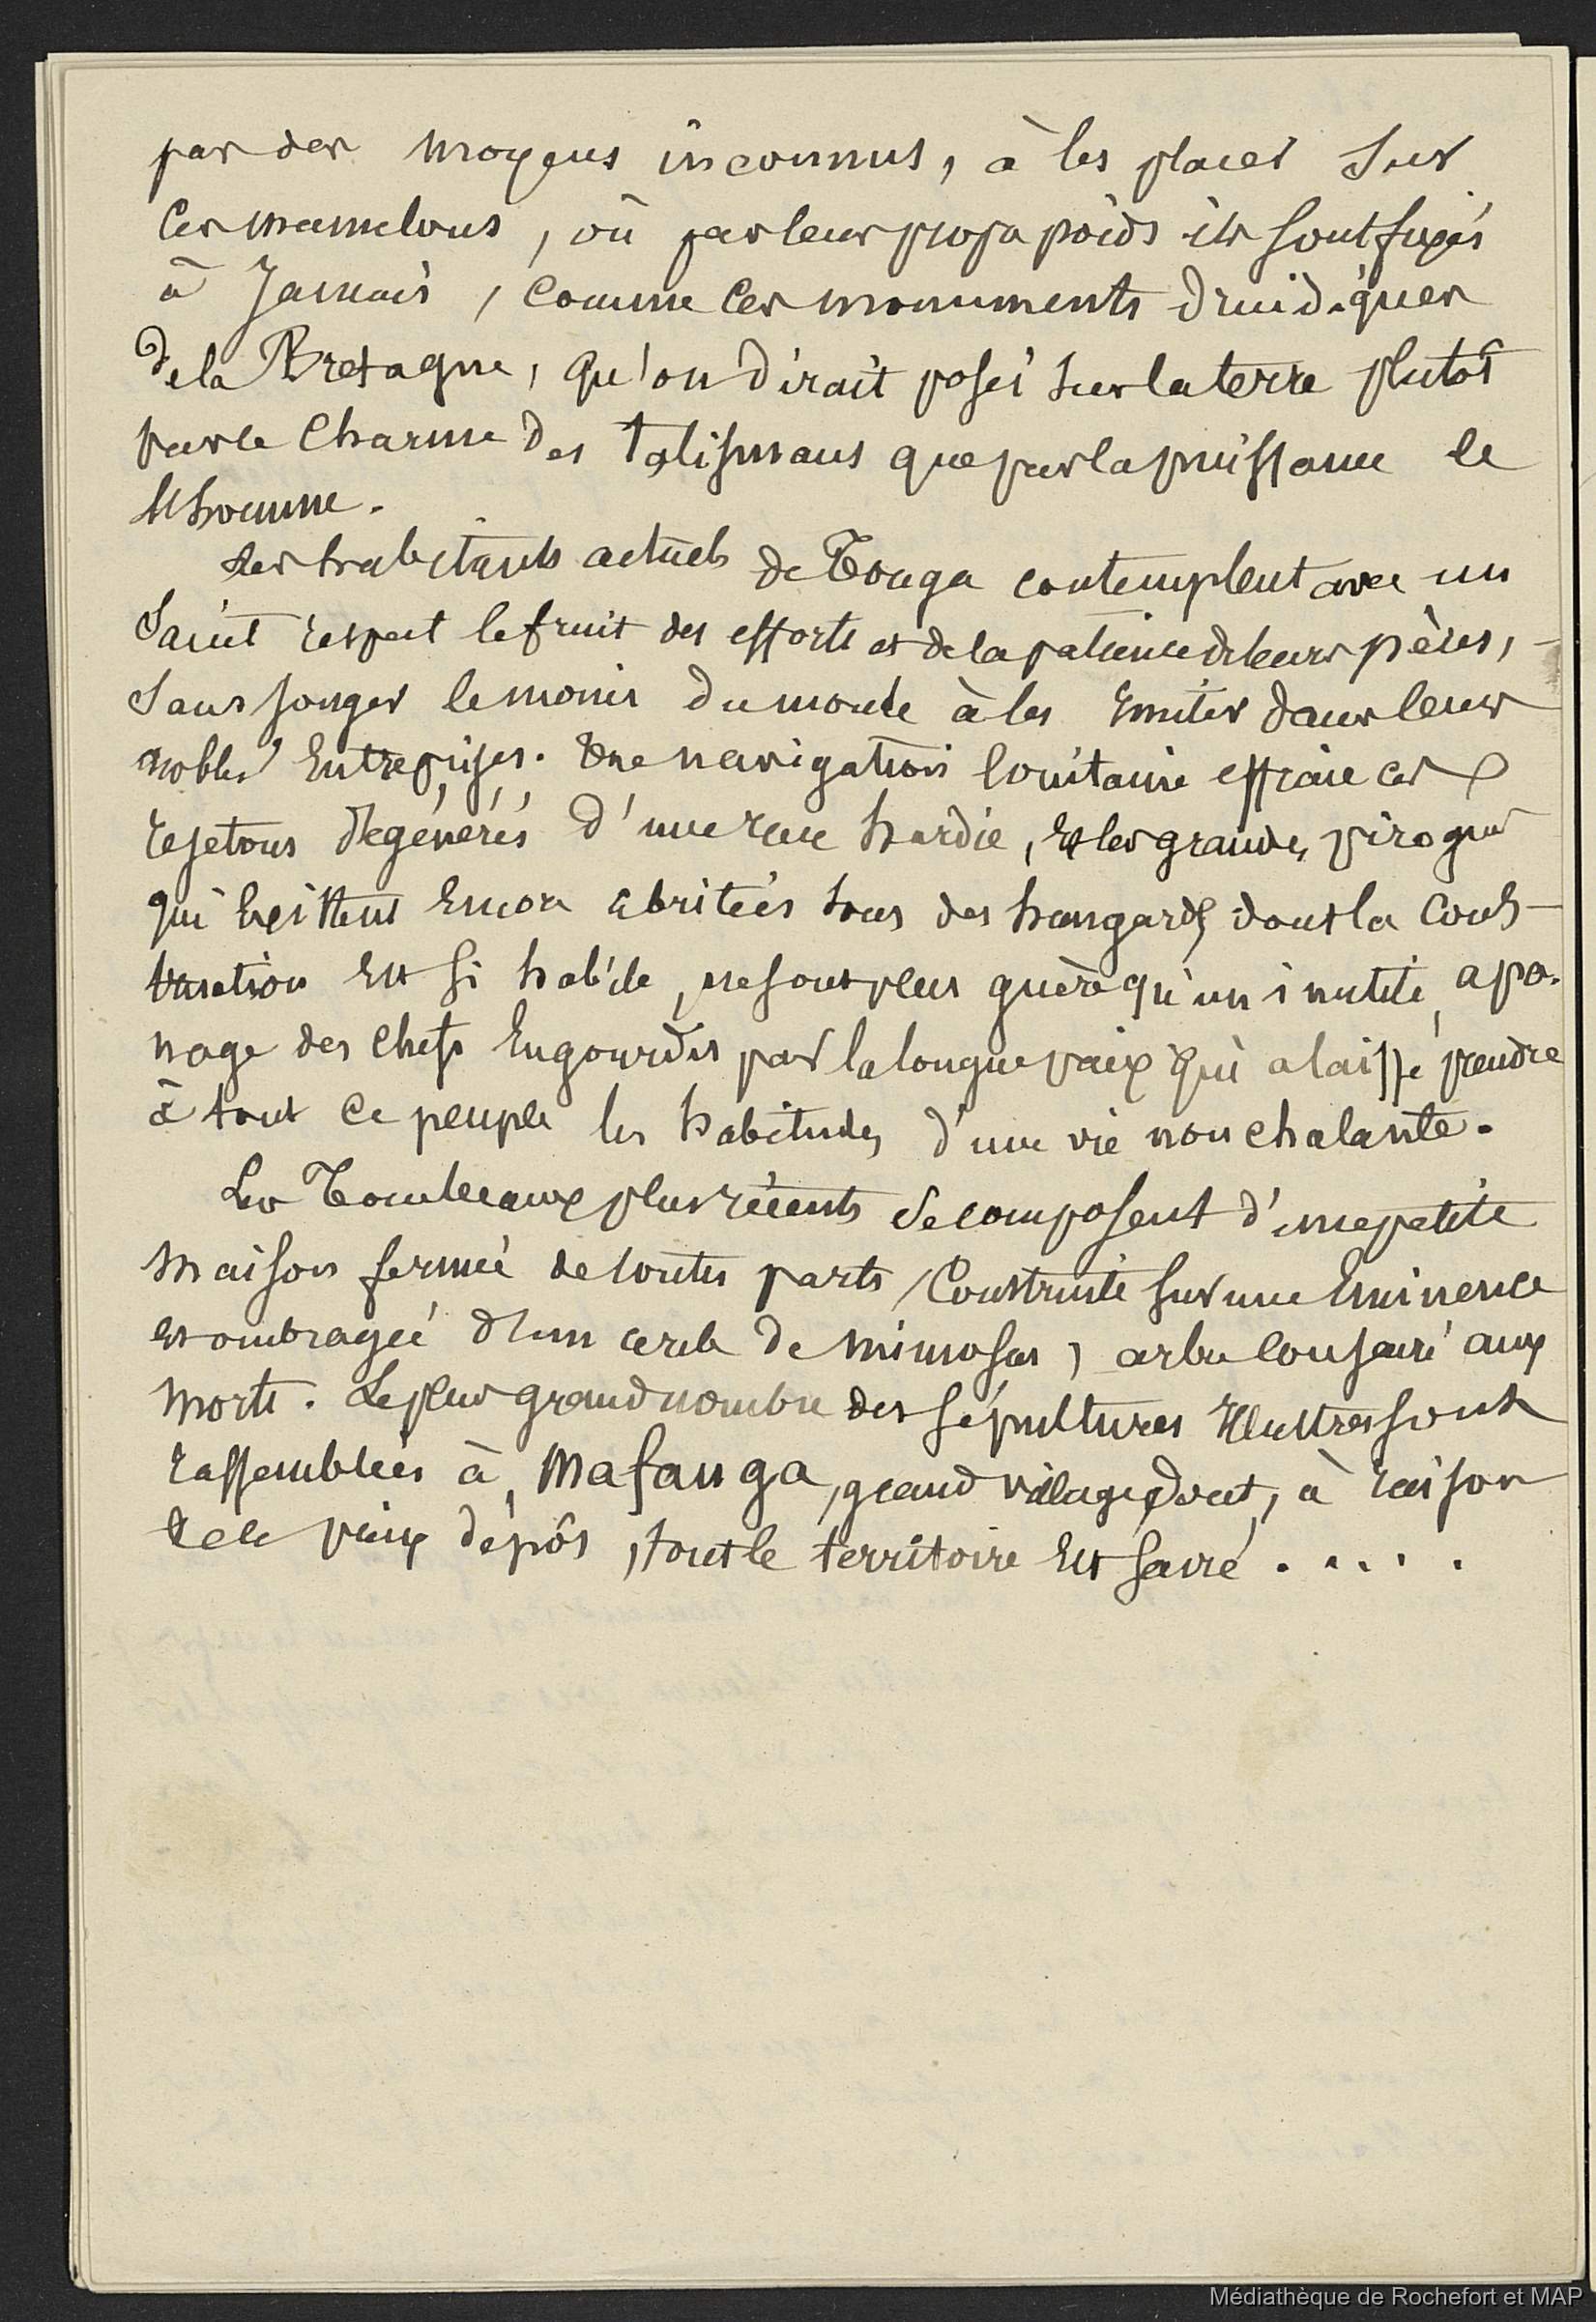 par des moyens inconnus, à les placer sur
ces mamelons, où par leur propre poids ils sont fixés
à Jamais, comme ces monuments druidiques
de la Bretagne, qu'on dirait posés sur la terre plutôt
par le charme des talismans que par la puissance de
l'homme.
Les habitants actuels de Tonga contemplent avec un
saint respect le fruit des efforts et de la patience de leurs pères,
sans songer le moins du monde à les imiter dans leurs
nobles Entreprises. Une navigation lointaine effraie ces
rejetons dégénérés d'une race hardie, et les grandes pirogues
qui existent encore abritées sous des hangards dont la cons-
truction est si habile, ne sont plus guère qu'un inutile apa-
nage des chefs engourdis par la longue paix qui a laissé prendre
à tout ce peuple les habitudes d'une vie nonchalante.
Les Tombeaux plus récents se composent d'une petite
maison fermée de toutes parts, construite sur une Eminence
et ombragée d'un cercle de mimosas, arbre consacré aux
morts. Le plus grand nombre des sépultures illustres sont
rassemblées à Mafanga, grand village dont, à raison
de ce pieux dépôs, tout le territoire est sacré.....
Médiathèque de Rochefort et MAP